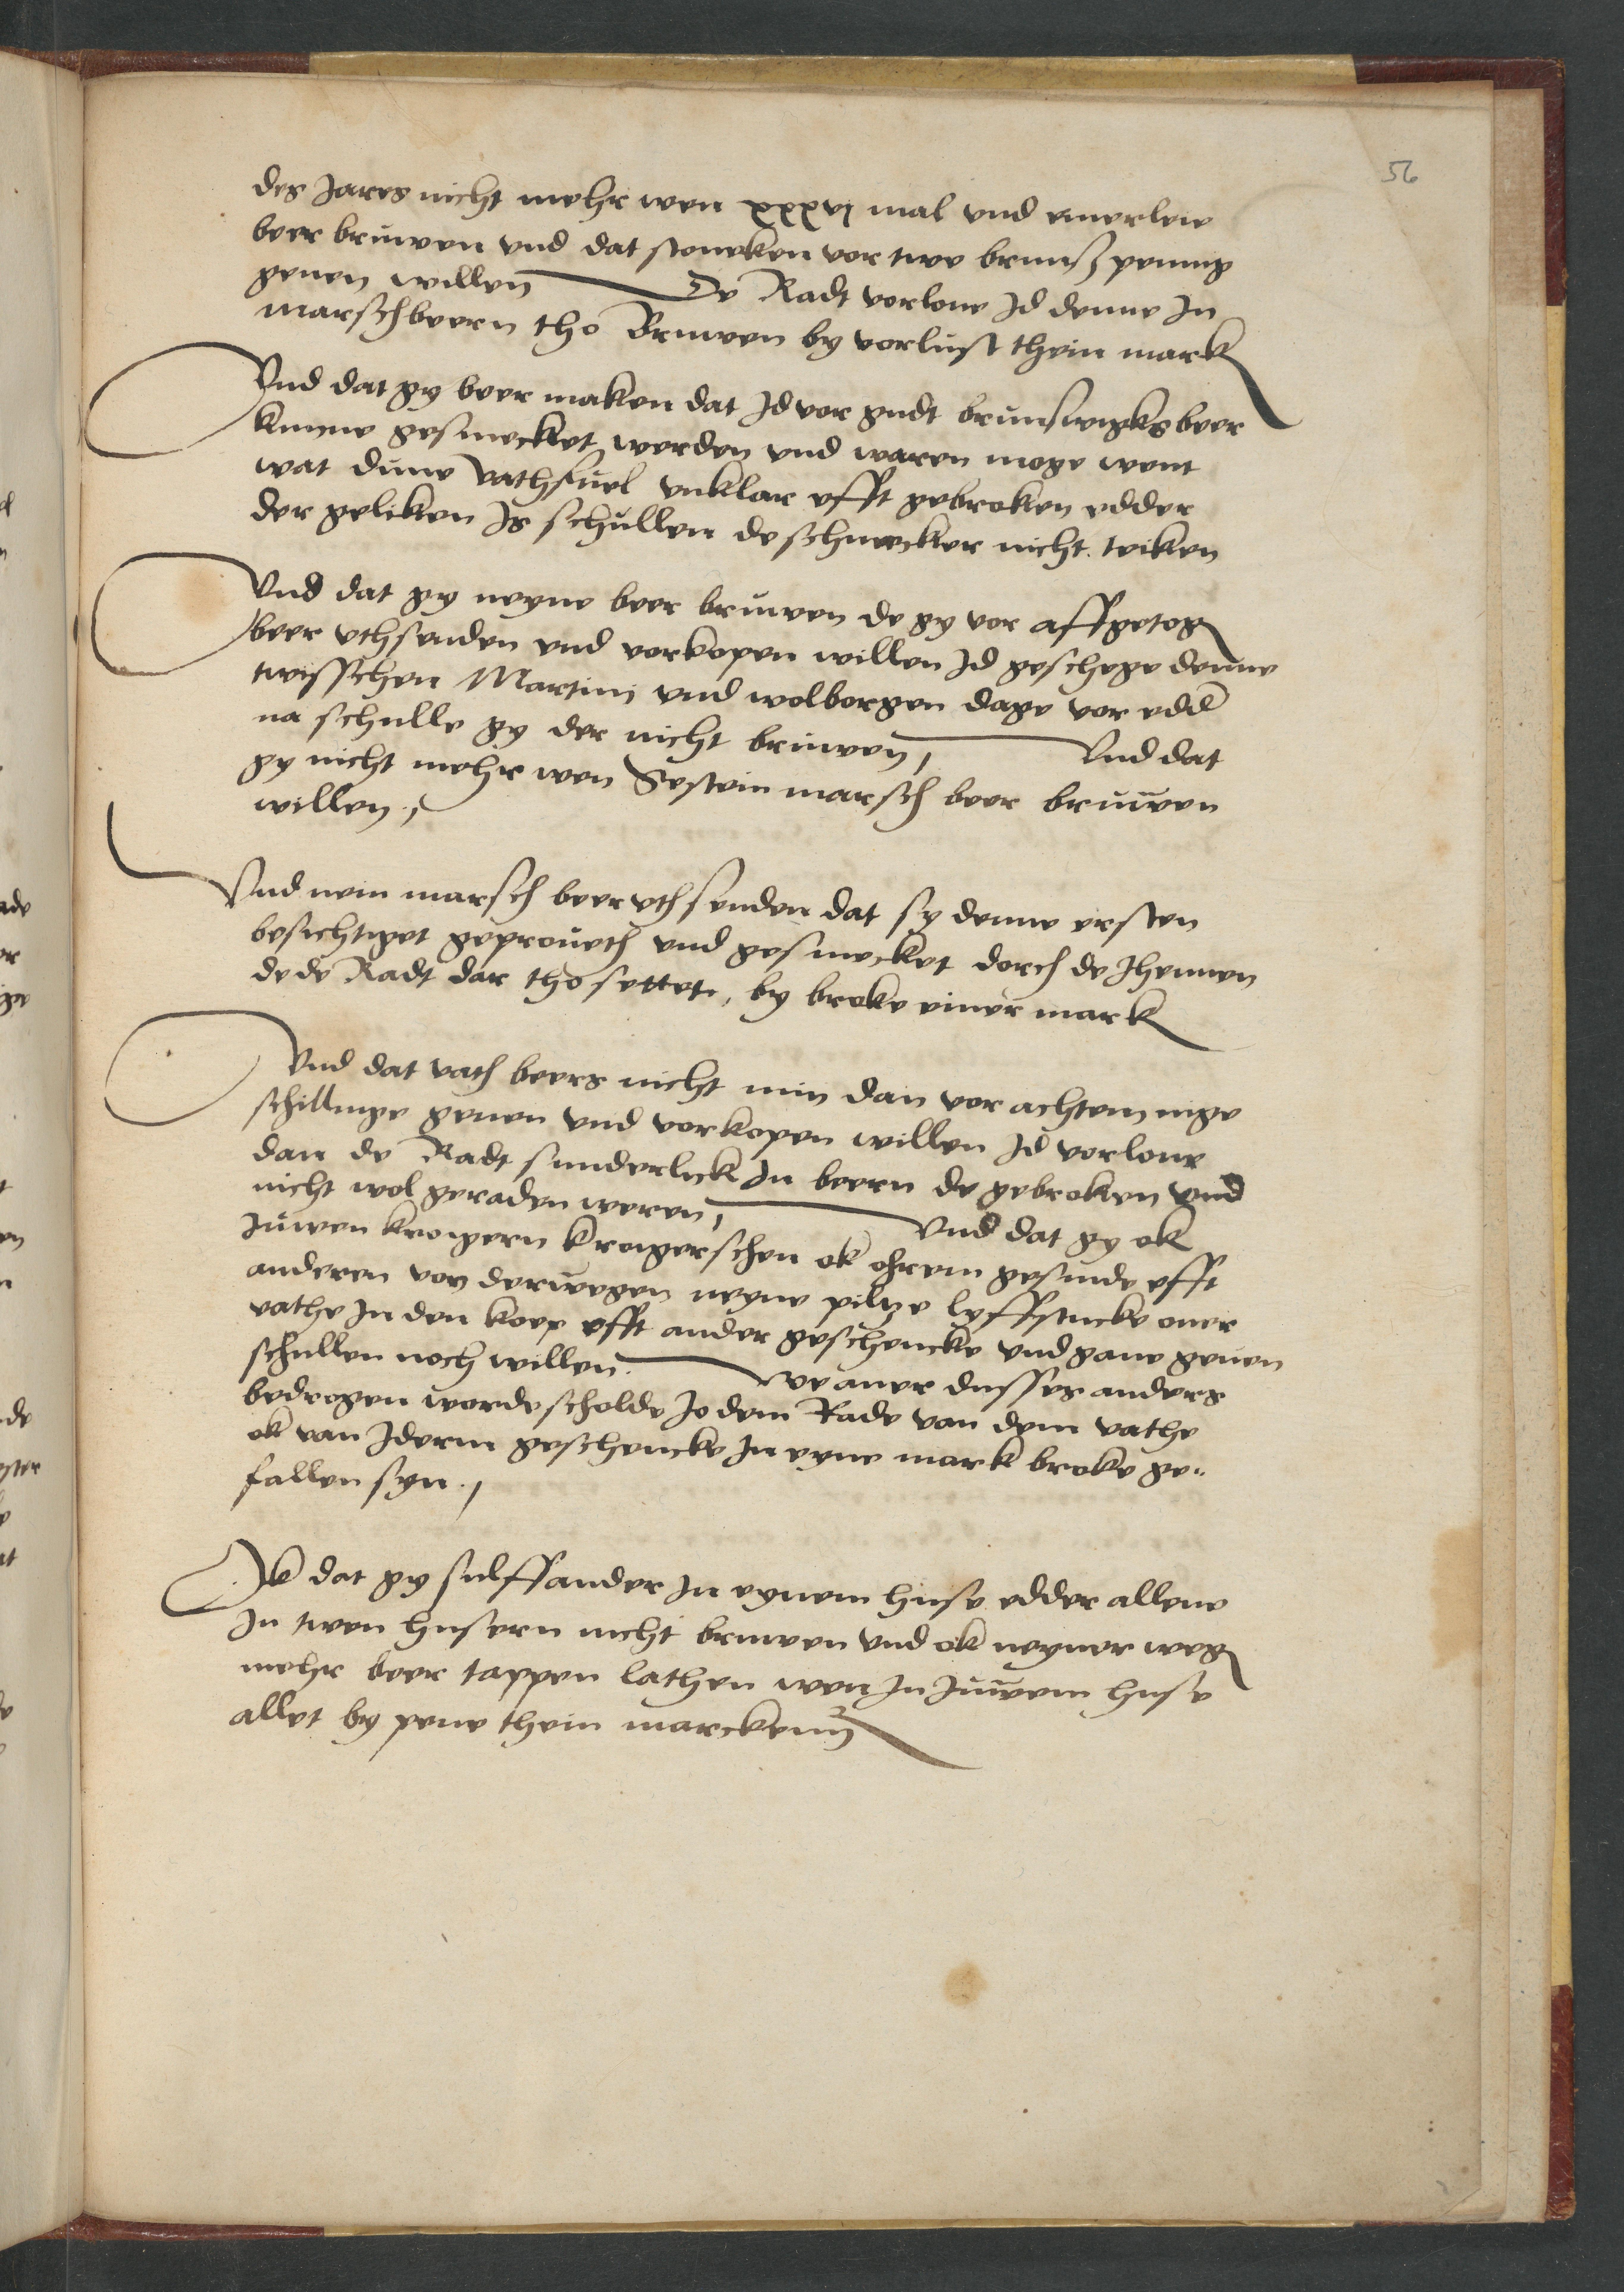 56
des Jares nicht mehr wen xxxvj mal vnd einerleie
beer bruwen vnd dat stoueken vor twe brunsz penning
geuen willen De Radt vorloue Jd denne Jn
marschbeern tho Bruwen by vorlust thein mark
Vnd dat gy beer maken dat Jd vor gudt brunswigks beer
kunne gesmecket werden vnd waren moge went
wat dunne vathfuel vnklar efft gebroken edder
der geliken Js schullen de schmecker nicht teiken
Vnd dat gy neyne beer bruwen de gy vor affgetog
beer vthsenden vnd vorkopen willen Jd geschege denne
twisschen Martini vnd wolborgen dage vor edd
na schulle gy der nicht bruwen, Vnd dat
gy nicht mehr wen Sestein marsch beer bruwen
willen,
Vnd nein marsch beer vthsenden dat sy denne ersten
besichtiget geproueth vnd gesmecket dorch de Jhennen
de de Radt dar tho settet, by broke einer mark
Vnd dat vath beers nicht min dan vor achtein nige
schillinge geuen vnd vorkopen willen Jd vorloue
dan de Radt sunderlick Jn beern de gebroken vnd
nicht wol geraden weren, Vnd dat gy ok
Juwen krogern krogerschen ok ohrem gesinde efft
anderen von derwegen neyne piltze lyffstucke ouer
vathe Jn den koep efft ander geschencke vnd gaue geuen
schullen noch willen. We auer dusses anders
bedrogen worde scholde Jo dem Rade van dem vathe
ok van Jderm geschencke Jn eyne mark broke ge-
fallen syn.
Ok dat gy sulffander Jn eynem huse edder allene
Jn twen husern nicht bruwen vnd ok neyner weg
mehr beer tappen lathen wen Jn Juwem huse
allet by pene thein marckenn